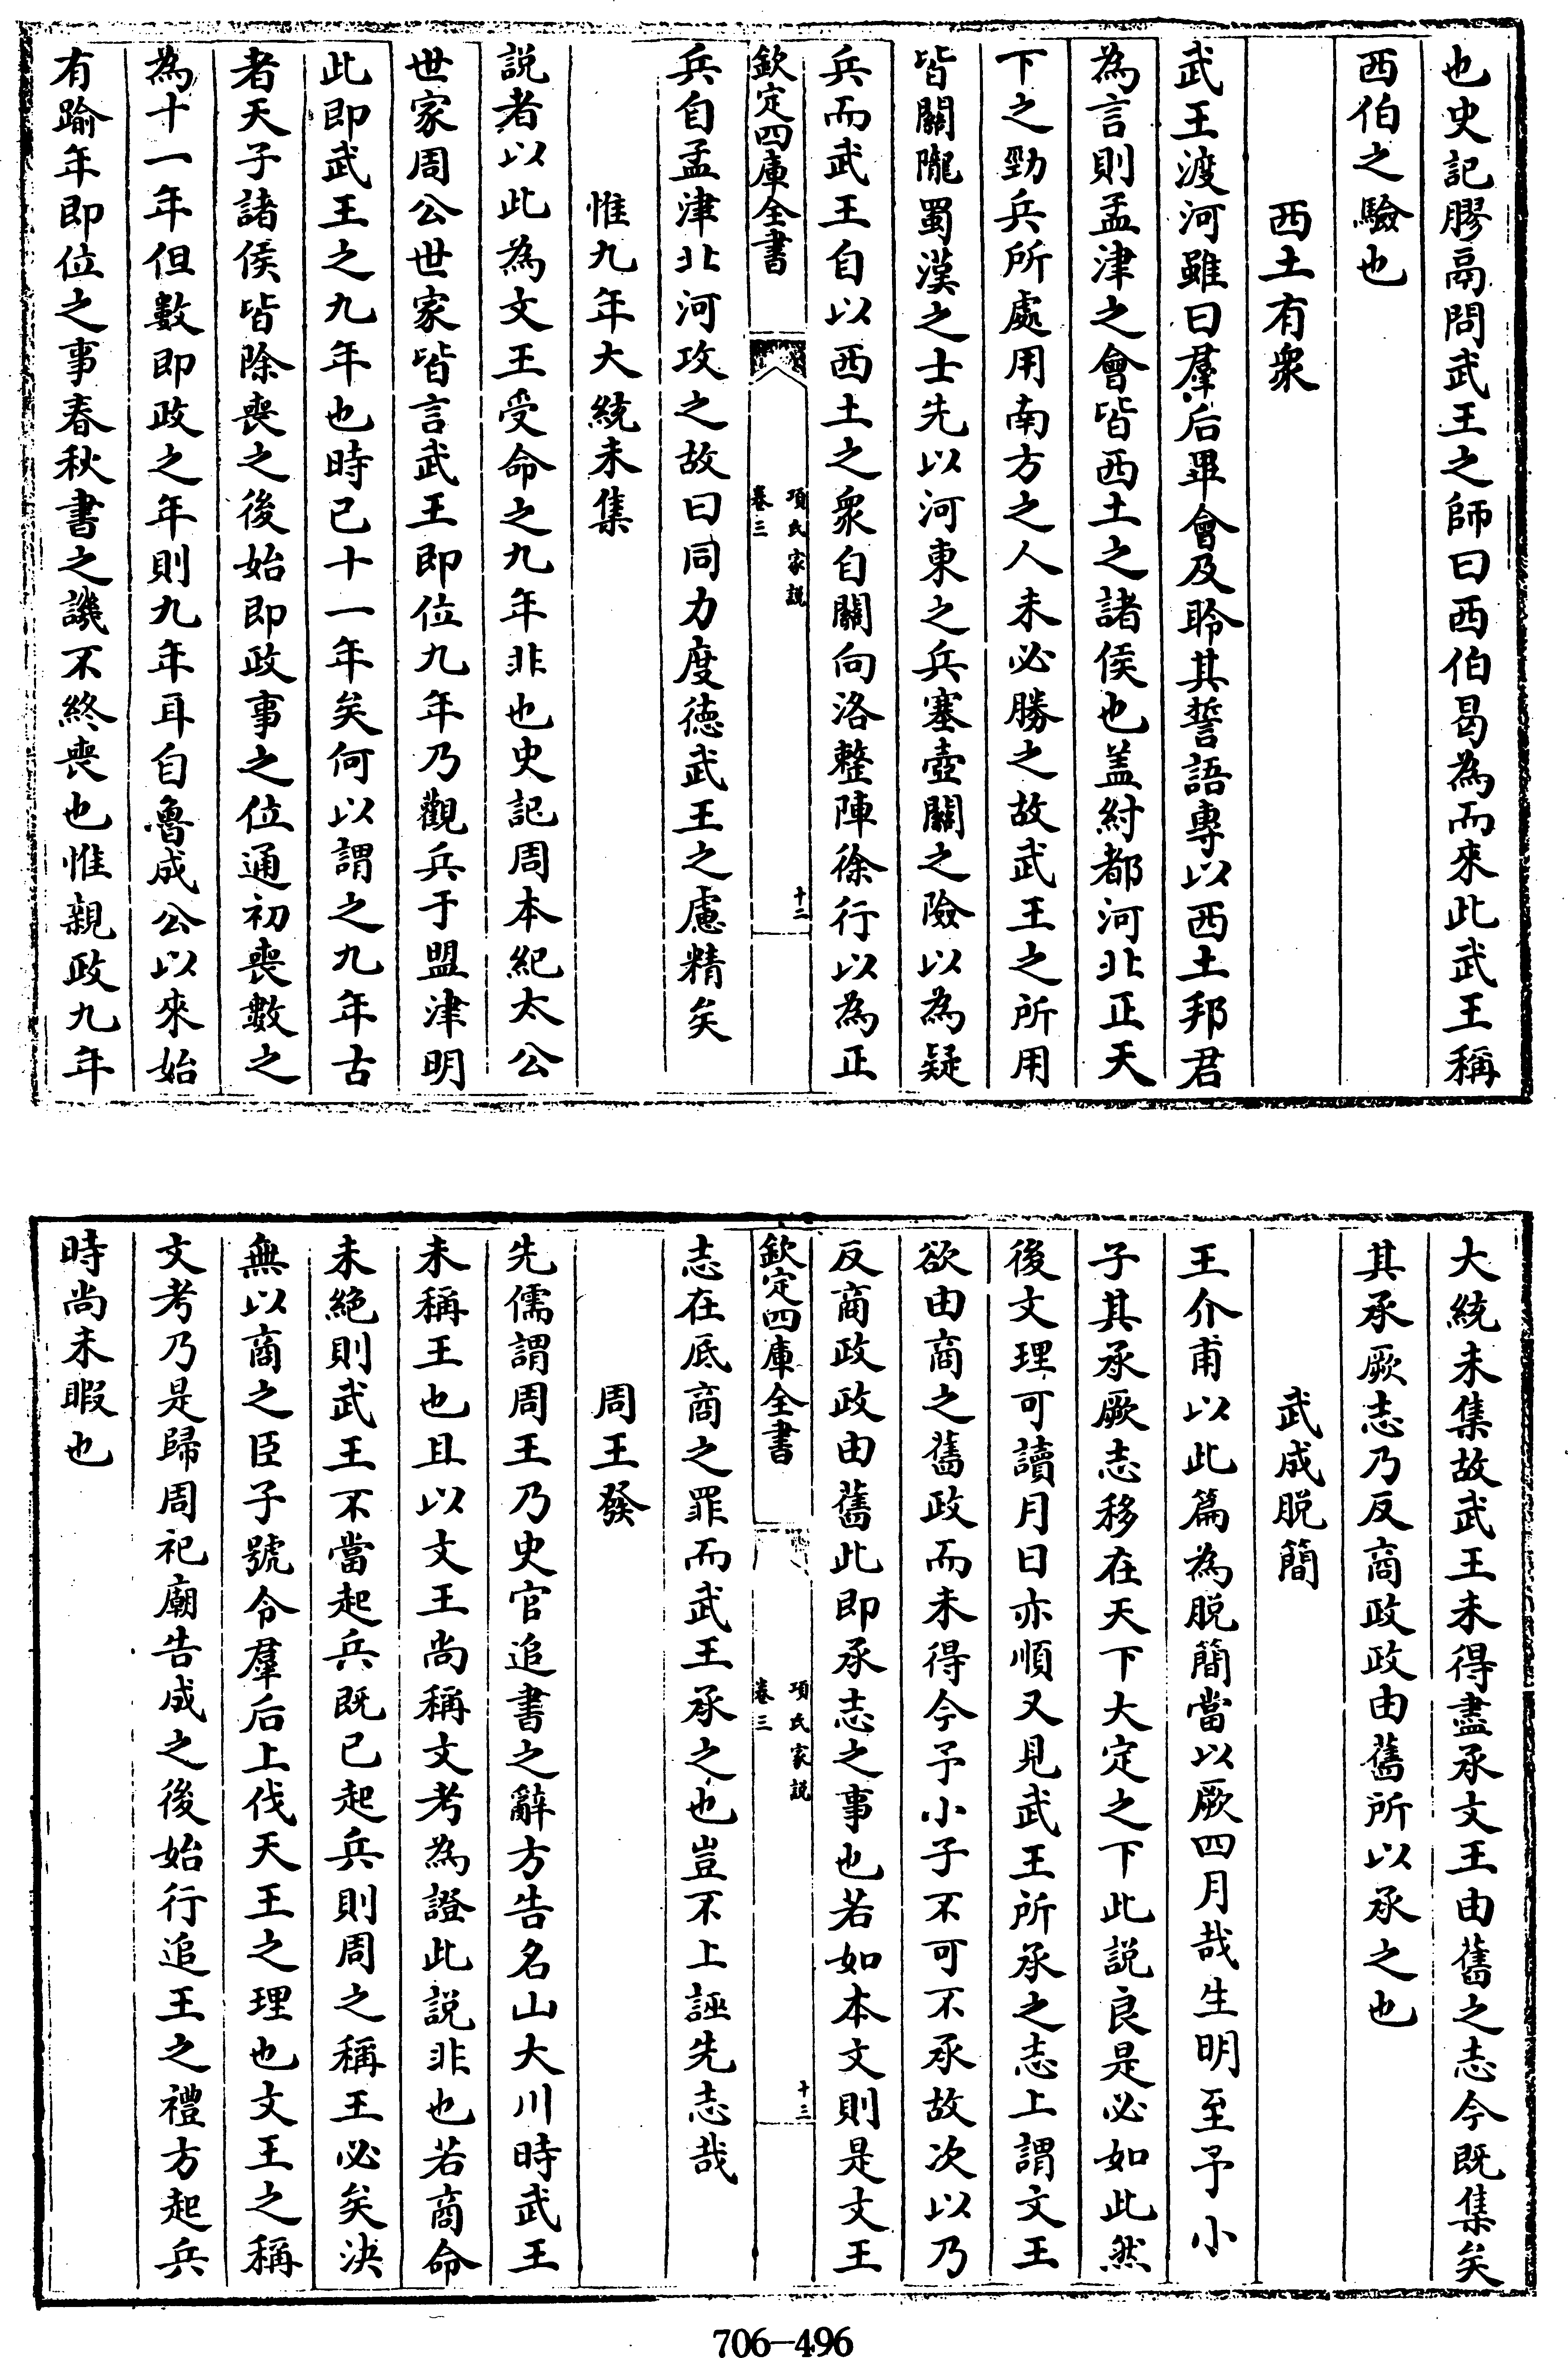 也史記膠鬲問武王之師曰西伯曷為而來此武王稱
西伯之驗也
西土有衆
武王渡河雖曰羣后畢會及聆其誓語專以西土邦君
為言則孟津之會皆西土之諸侯也盖紂都河北正天
下之勁兵所處用南方之人未必勝之故武王之所用
皆關隴蜀漢之士先以河東之兵塞壺關之險以為疑
兵而武王自以西土之衆自關向洛整陣徐行以為正
欽定四庫全書
項氏家說
卷三
十二
兵自孟津北河攻之故曰同力度德武王之慮精矣
惟九年大統未集
説者以此為文王受命之九年非也史記周本紀太公
世家周公世家皆言武王即位九年乃觀兵于盟津明
此即武王之九年也時已十一年矣何以謂之九年古
者天子諸侯皆除喪之後始即政事之位通初喪數之
為十一年但數即政之年則九年耳自魯成公以來始
有踰年即位之事春秋書之譏不終喪也惟親政九年
大統未集故武王未得盡承文王由舊之志今既集矣
其承厥志乃反商政政由舊所以承之也
武成脱簡
王介甫以此篇為脱簡當以厥四月哉生明至予小
子其承厥志移在天下大定之下此説良是必如此然
後文理可讀月日亦順又見武王所承之志上謂文王
欲由商之舊政而未得今予小子不可不承故次以乃
反商政政由舊此即承志之事也若如本文則是文王
欽定四庫全書
項氏家說
卷三
十三
志在底商之罪而武王承之也豈不上誣先志哉
周王發
先儒謂周王乃史官追書之辭方告名山大川時武王
未稱王也且以文王尚稱文考為證此説非也若商命
未絶則武王不當起兵既已起兵則周之稱王必矣決
無以商之臣子號令羣后上伐天王之理也文王之稱
文考乃是歸周祀廟告成之後始行追王之禮方起兵
時尚未暇也
706-496